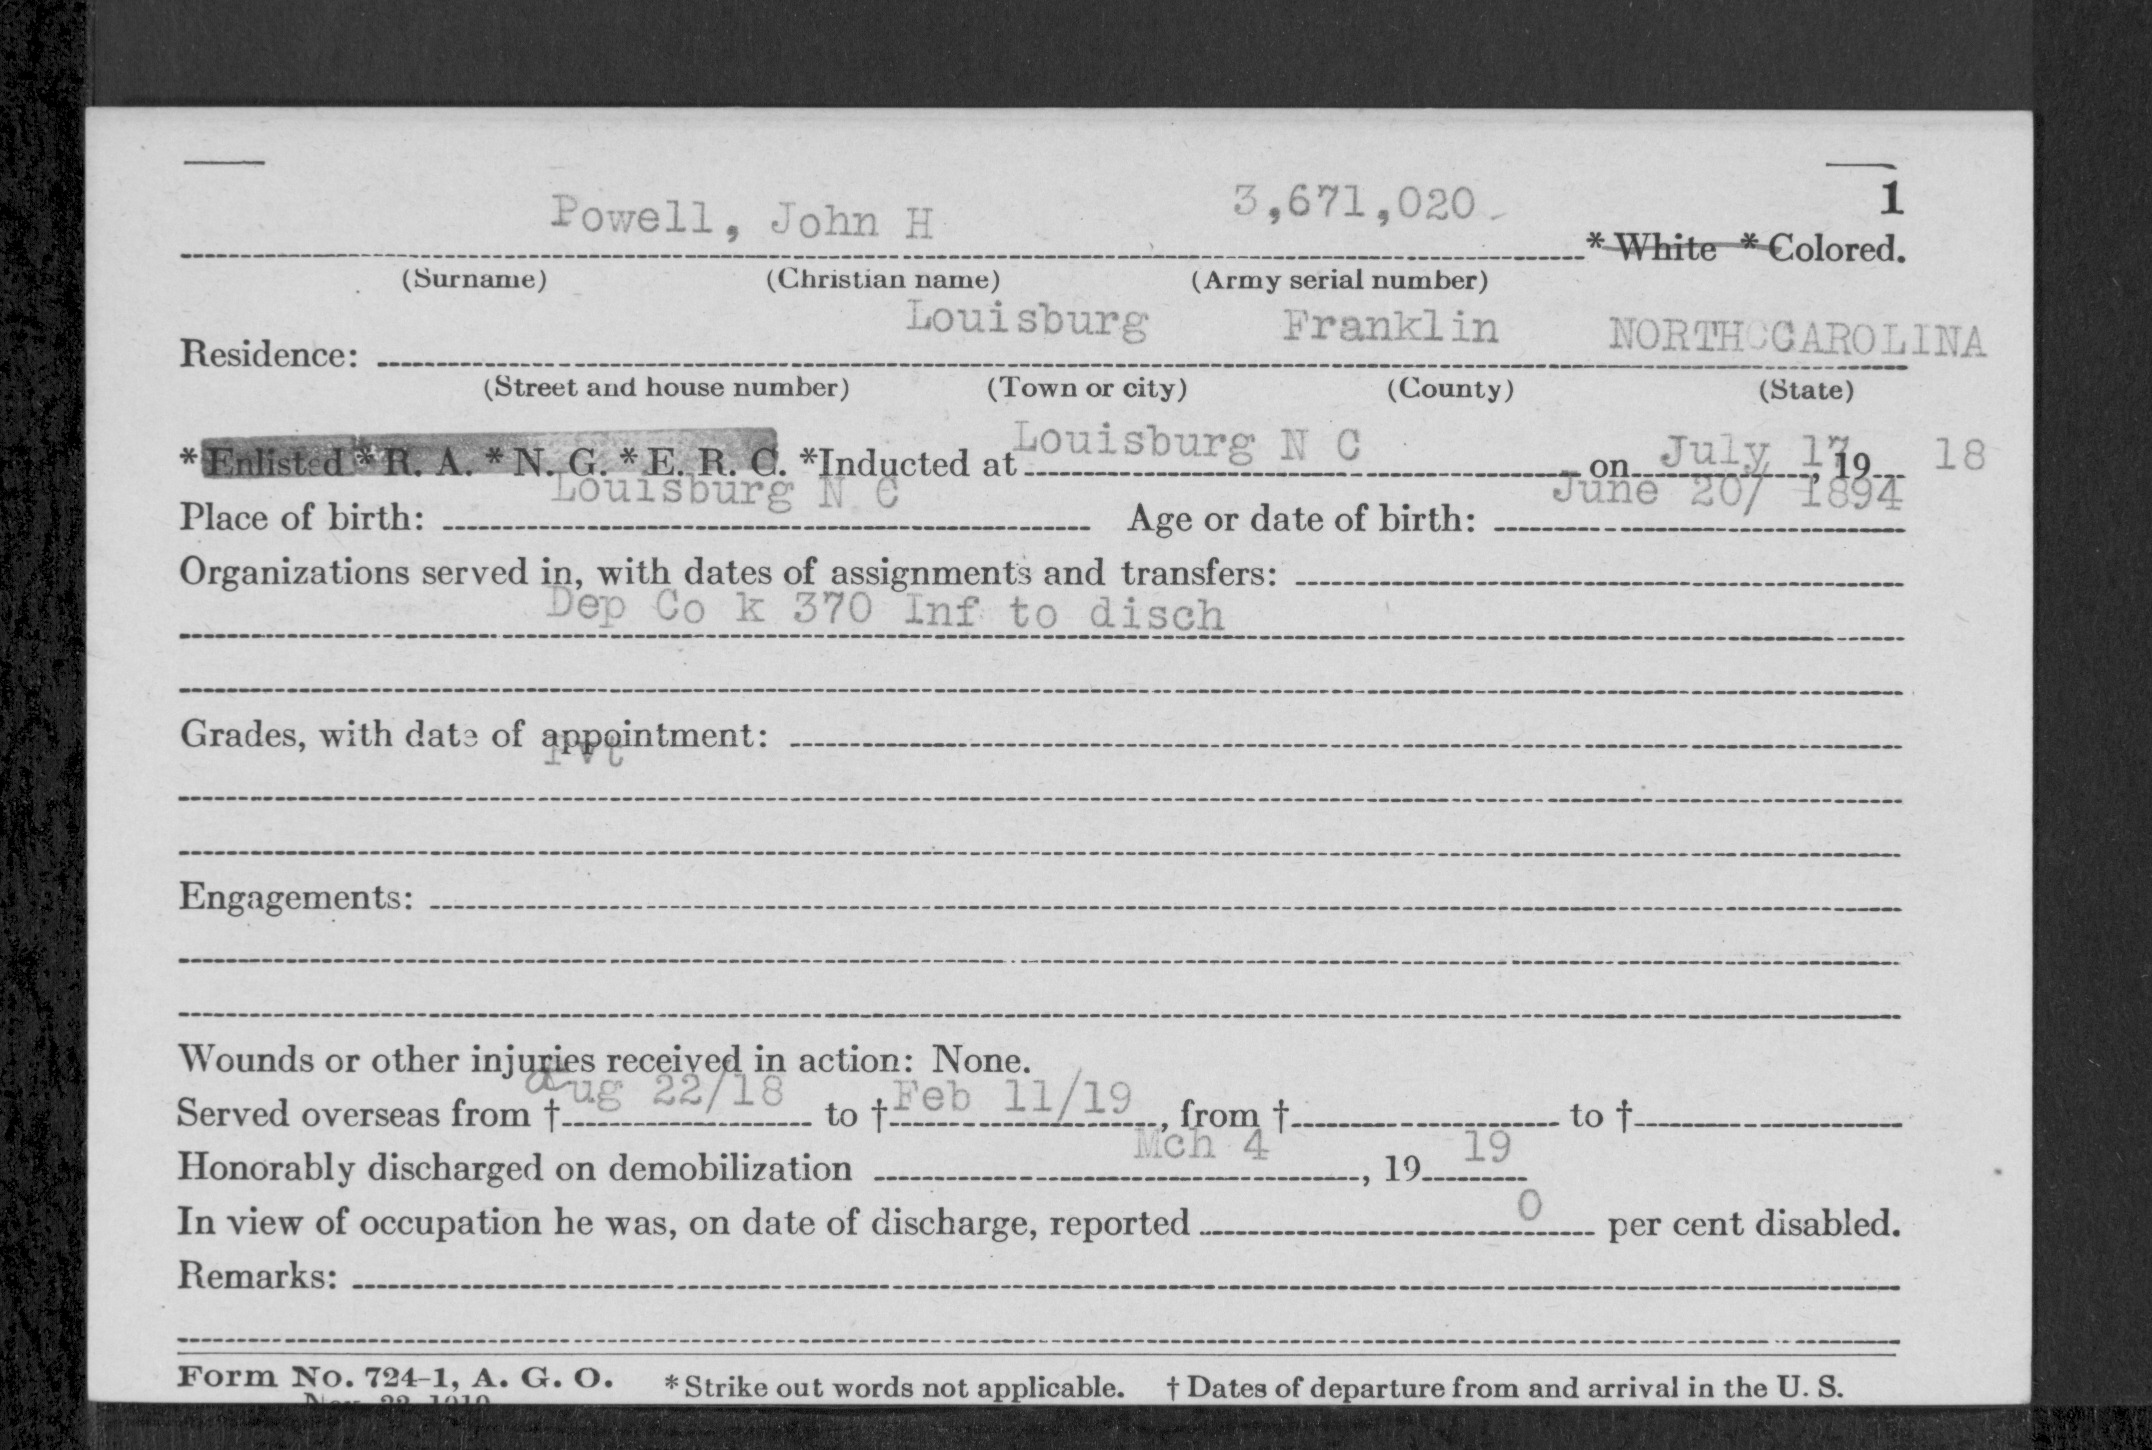 1
Powell, John H 3,671,020
*White *Colored.
(Surname) (Christian name) (Army serial number)
Louisburg Franklin NORTH CAROLINA
Residence:
(Street and house number) (Town or city) (County) (State)
*Enlisted *R. A. *N. G. *E. R. C. *Inducted at Louisburg N C on July 17, 19 18
Place of birth: Louisburg N C Age or date of birth: June 20/ 1894
Organizations served in, with dates of assignments and transfers:
Dep Co k 370 Inf to disch
Grades, with date of appointment:
Pvt
Engagements:
Wounds or other injuries received in action: None.
Served overseas from † Aug 22/18 to † Feb 11/19, from † to †
Honorably discharged on demobilization Mch 4, 19 19
In view of occupation he was, on date of discharge, reported 0 per cent disabled.
Remarks:
Form No. 724-1, A. G. O. *Strike out words not applicable. † Dates of departure from and arrival in the U. S.